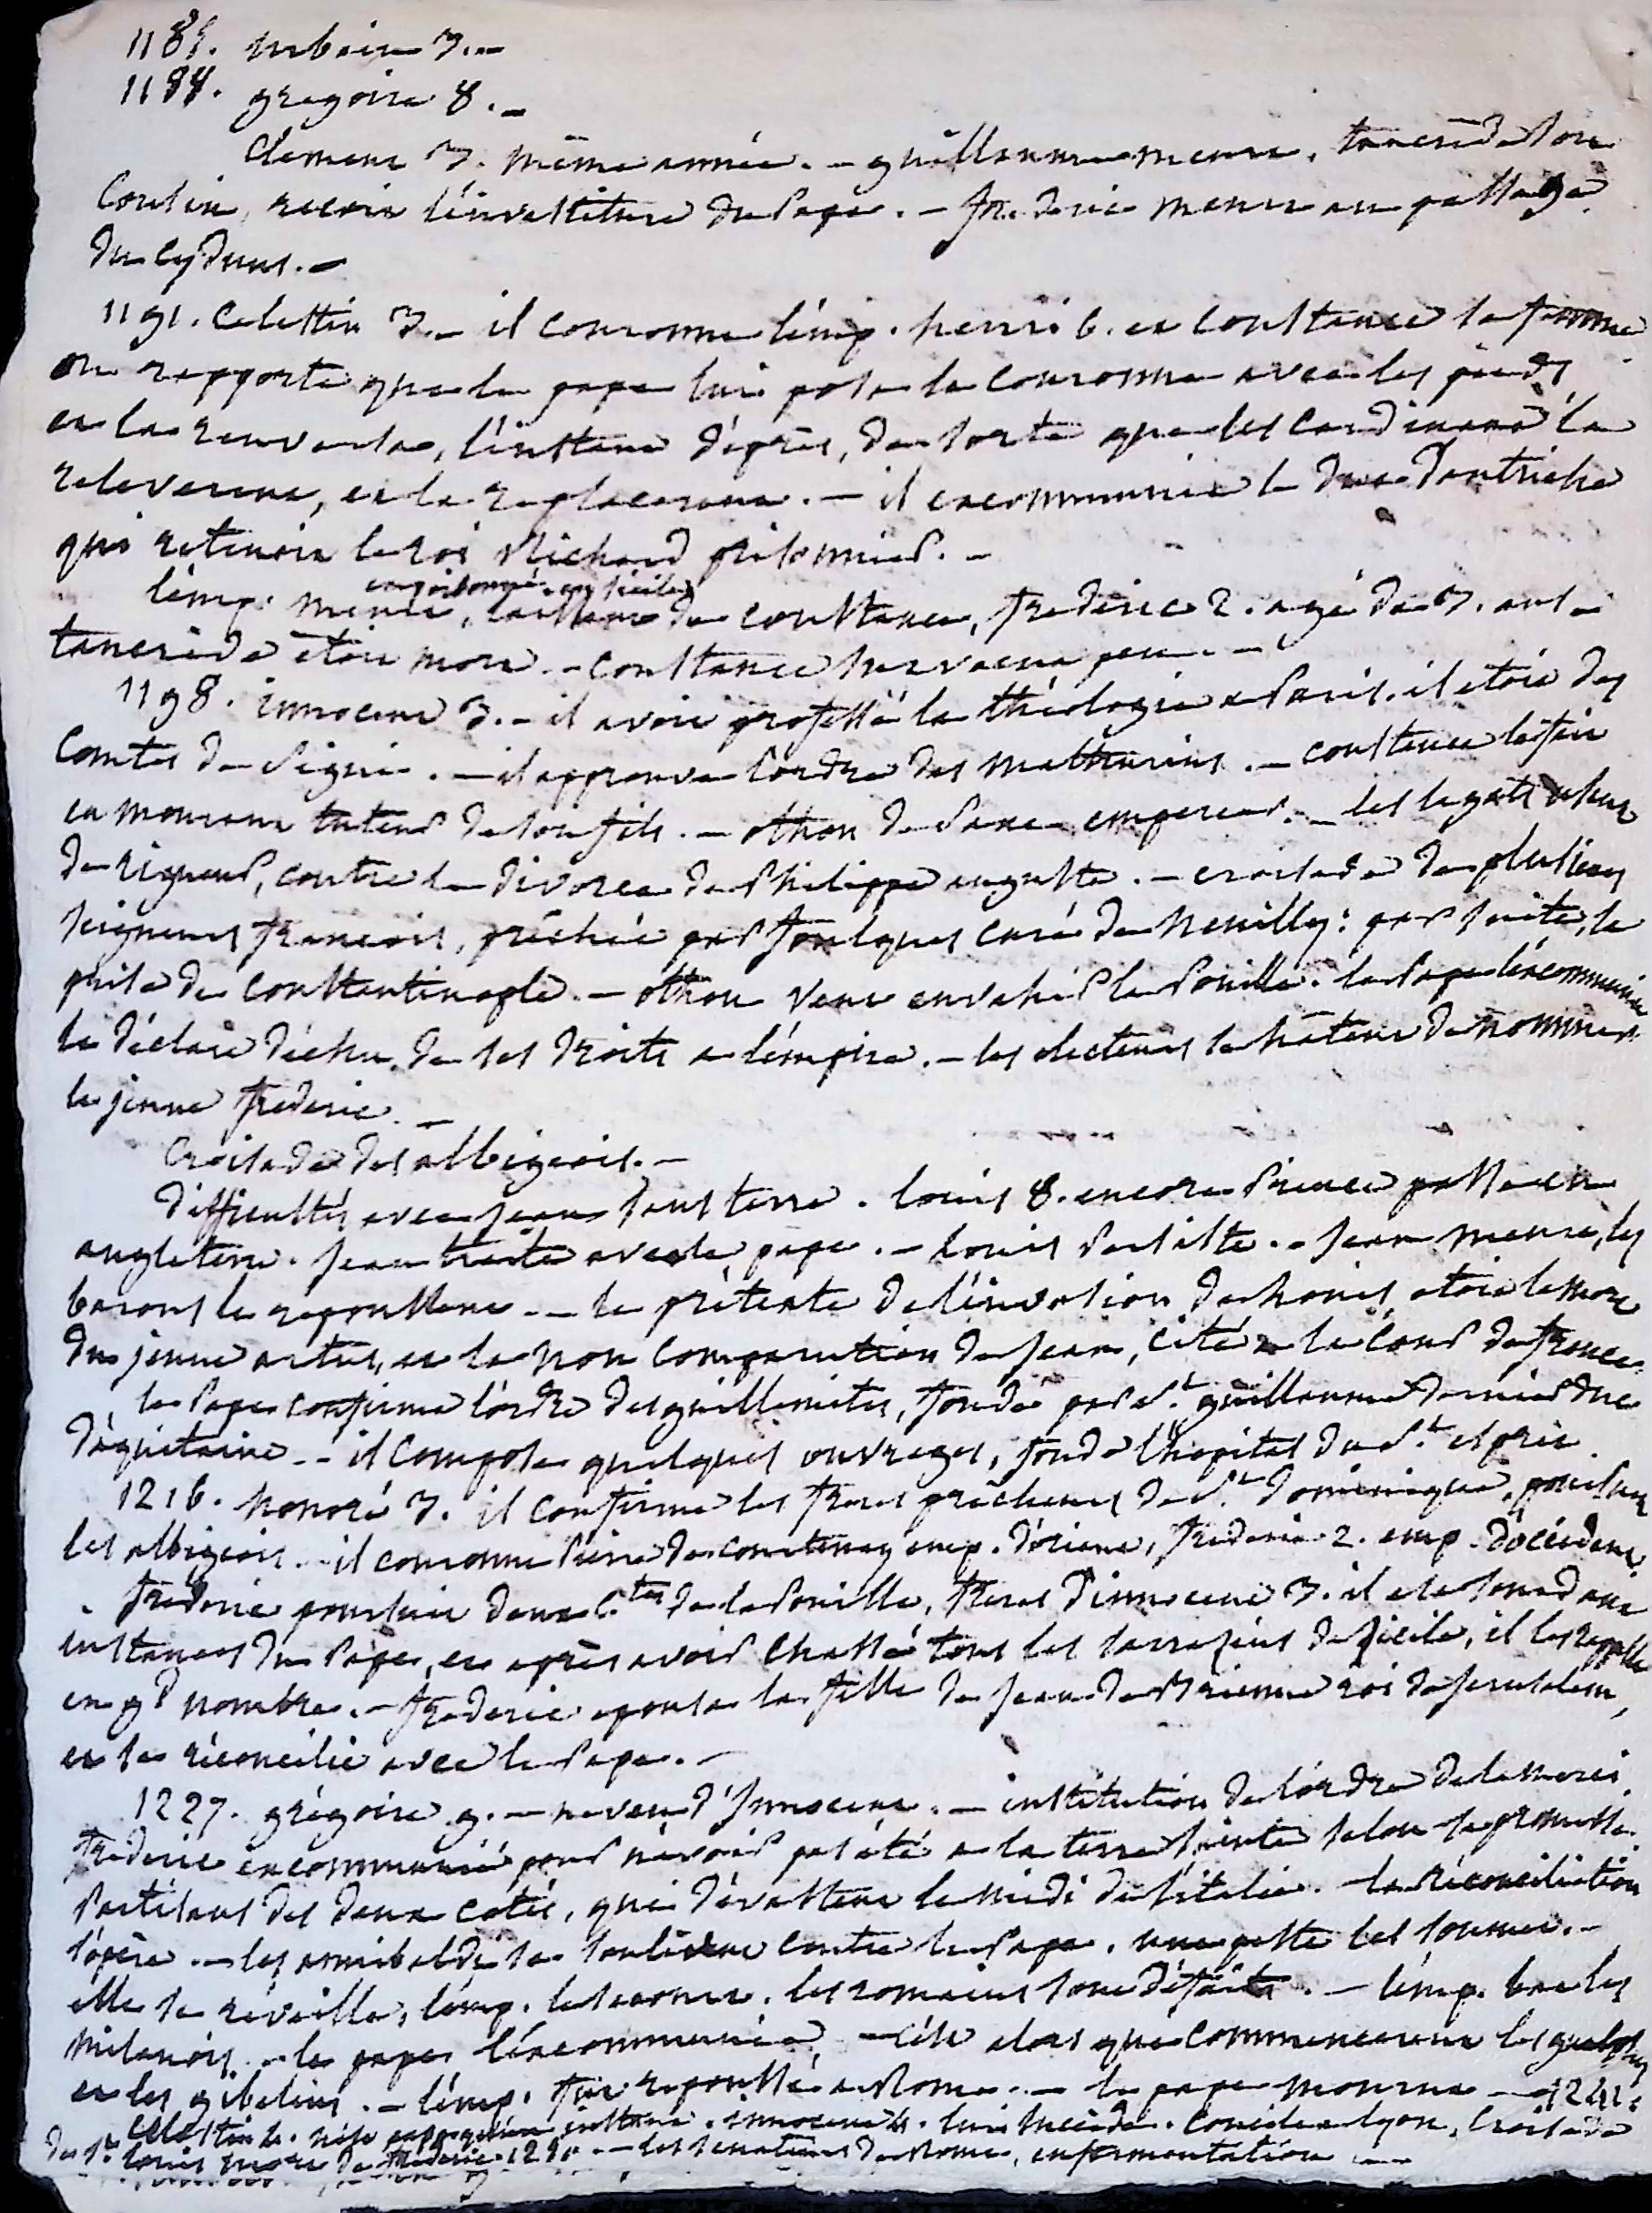 1185. urbain 3. –
1187. gregoire 8. –
Clement 3. même année. – guillaume meurt, tancrède son
Cousin, recoit l'investiture du Pape. – frederic meurt au passage
du Cydnus. –
1191. Celestin 3. – il couronne l'emp. henri 6. et Constance sa femme
on rapporte que le pape lui posa la couronne avec les pieds
et la renversa, l'instant d'après, de sorte que les Cardinaux la
releverent, et la replacerent. – il excommunie le duc d'autriche
qui retenoit le roi Richard prisonnier. –
l'emp. meurt, empoisonné en sicile, laissant de Constance, frederic 2. agé de 3. ans –
tancrède étoit mort. – Constance survecut peu. –
1198. innocent 3. – il avoit professé la théologie a Paris. il étoit des
Comtes de Signie. – il approuva l'ordre des mathurins. – Constance le fait
en mourant tuteur de son fils. – othon de Saxe empereur. – les legats usent
de rigueur, contre le divorce de Philippe auguste. – croisade de plusieurs
seigneurs francois, prêchée par foulques curé de Neuilly: par suite, la
prise de Constantinople. – othon veut envahir la Pouille. le Pape l'excommunie
le déclare déchu de ses droits a l'empire. – les electeurs se hâtent de nommer
le jeune frederic. –
Croisade des albigeois. –
difficultés avec Jean sans terre. louis 8. encore Prince passe en
angleterre. Jean traite avec le pape. – Louis persiste. – Jean meurt, les
barons le repoussent. – le prétexte de l'invasion de Louis, étoit la mort
du jeune artus, et la non comparution de Jean, cité a la Cour de france.
le Pape confirme l'ordre des guillemites, fondé par St. guillaume dernier duc
d'aquitaine. – il composa quelques ouvrages, fonda l'hopital du St. esprit.
1216. honoré 3. il confirme les freres prêcheurs de St. Dominique, poursuit
les albigeois. – il couronne Pierre de Courtenay emp. d'orient, frederic 2. emp. d'occident.
– frederic poursuit deux Ctes de la Pouille, freres d'innocent 3. il cede aux
instances du Pape, et après avoir chassé tous les sarrasins de sicile, il les rappelle
en gd nombre. – frederic epousa la fille de Jean de Brienne roi de Jerusalem,
et se réconcilie avec le Pape. –
1227. grégoire 9. – neveu d'Innocent. – institution de l'ordre de la merci.
frederic excommunié pour n'avoir pas été a la terre sainte selon sa promesse.
Partisans des deux cotés, qui dévastent le midi de l'italie. la réconciliation
s'opère. – les annibaldi se soulèvent contre le Pape. une peste les soumet. –
elle se réveille, l'emp. les secourt. les romains sont défaits. – l'emp. bat les
milanois. – le pape l'excommunie, – c'est alors que commencerent les guelphes
et les gibelins. – l'emp. fut repoussé a Rome. – le pape mourut – 1241.
Celestin 4. instant. innocent 4. lui succède. Concile a lyon, Croisade
de St. louis mort de frederic 1250. – les senateurs de Rome, en fermentation